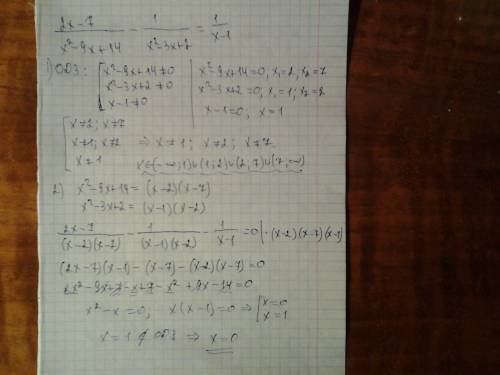 (2x-7)/(x²-9x+14) - 1/(x²-3x+2) = 1/(x-1)
1) ОДЗ: [x²-9x+14≠0 | x²-9x+14=0, x₁=2, x₂=7
x²-3x+2≠0 | x²-3x+2=0, x₁=1, x₂=2
x-1≠0 | x-1=0; x=1
[x≠2; x≠7
x≠1; x≠2 ⇒ x≠1; x≠2; x≠7
x≠1 x∈(-∞;1)∪(1;2)∪(2;7)∪(7;∞)
2) x²-9x+14=(x-2)(x-7)
x²-3x+2=(x-1)(x-2)
(2x-7)/((x-2)(x-7)) - 1/((x-1)(x-2)) - 1/(x-1) = 0 | ·(x-2)(x-7)(x-1)
(2x-7)(x-1)-(x-7)-(x-2)(x-7)=0
2x²-9x+7-x+7-x²+9x-14=0
x²-x=0; x(x-1)=0 ⇒ [x=0
x=1
x=1 ∉ ОДЗ ⇒ x=0